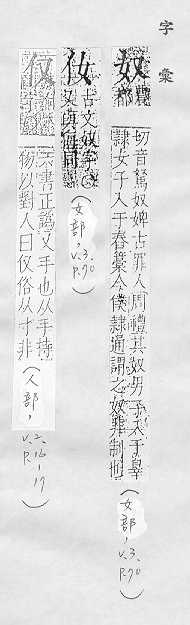 字彙
奴 農都
切音駑奴婢古罪人周禮其奴男子入于辠
隸女子入于舂藁今僕隸通謂之奴罪制也
(女部, v.3. p.70)
㚢 古文奴字○
又與侮同
(女部, v.3. p.70)
仅
六書正譌又手也从手持
物以對人曰仅俗从寸非
(人部, v.2. p.16-17)